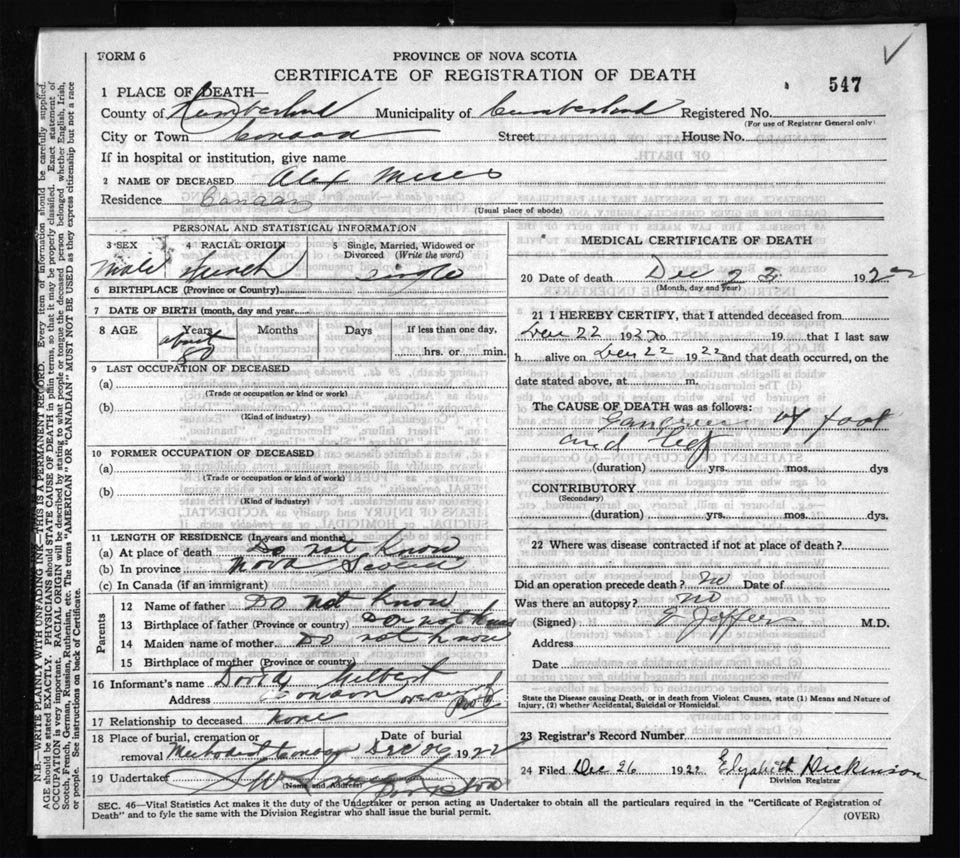 FORM 6
PROVINCE OF NOVA SCOTIA
CERTIFICATE OF REGISTRATION OF DEATH
547
1 PLACE OF DEATH—
County of Cumberland Municipality of Cumberland Registered No.
(For use of Registrar General only)
City or Town Canaan Street House No.
If in hospital or institution, give name
2 NAME OF DECEASED Alex
Residence Canaan
(Usual place of abode)
PERSONAL AND STATISTICAL INFORMATION
3 SEX 4 RACIAL ORIGIN 5 Single, Married, Widowed or Divorced (Write the word)
Male French single
6 BIRTHPLACE (Province or Country)
7 DATE OF BIRTH (month, day and year)
8 AGE Years Months Days If less than one day,
about 80 hrs. or min.
9 LAST OCCUPATION OF DECEASED
(a)
(Trade or occupation or kind or work)
(b)
(Kind of industry)
10 FORMER OCCUPATION OF DECEASED
(a)
(Trade or occupation or kind of work)
(b)
(Kind of industry)
11 LENGTH OF RESIDENCE (In years and months)
(a) At place of death Do not know
(b) In province Nova
(c) In Canada (if an immigrant)
Parents
12 Name of father Do not know
13 Birthplace of father (Province or country) Do not know
14 Maiden name of mother Do not know
15 Birthplace of mother (Province or country)
16 Informant's name
Address
17 Relationship to deceased None
18 Place of burial, cremation or removal Methodist Canaan Date of burial Dec 26 1922
19 Undertaker
(Name and Address)
MEDICAL CERTIFICATE OF DEATH
20 Date of death Dec 23 1922
(Month, day and year)
21 I HEREBY CERTIFY, that I attended deceased from
Dec 22 1922 to 19 that I last saw
h alive on Dec 22 1922 and that death occurred, on the
date stated above, at m.
The CAUSE OF DEATH was as follows:
Gangrene of foot
and leg
(duration) yrs. mos. dys
CONTRIBUTORY
(Secondary)
(duration) yrs. mos. dys.
22 Where was disease contracted if not at place of death?
Did an operation precede death? no Date of
Was there an autopsy? no
(Signed) Jeffers M.D.
Address
Date
State the Disease causing Death, or in death from Violent Causes, state (1) Means and Nature of
Injury, (2) whether Accidental, Suicidal or Homicidal.
23 Registrar's Record Number
24 Filed Dec 26 1922 Elizabeth Dickinson
Division Registrar
SEC. 46—Vital Statistics Act makes it the duty of the Undertaker or person acting as Undertaker to obtain all the particulars required in the "Certificate of Registration of
Death" and to fyle the same with the Division Registrar who shall issue the burial permit.
(OVER)
N.B.—WRITE PLAINLY WITH UNFADING INK—THIS IS A PERMANENT RECORD. Every item of information should be carefully supplied.
AGE should be stated EXACTLY. PHYSICIANS should STATE CAUSE OF DEATH in plain terms, so that it may be properly classified. Exact statement of
OCCUPATION is very important. RACIAL ORIGIN will be described by stating to what people or tongue the deceased person belonged whether English, Irish,
Scotch, French, German, Russian, Ruthenian, etc. The terms "AMERICAN" OR "CANADIAN" MUST NOT BE USED as they express citizenship but not a race
or people. See instructions on back of Certificate.